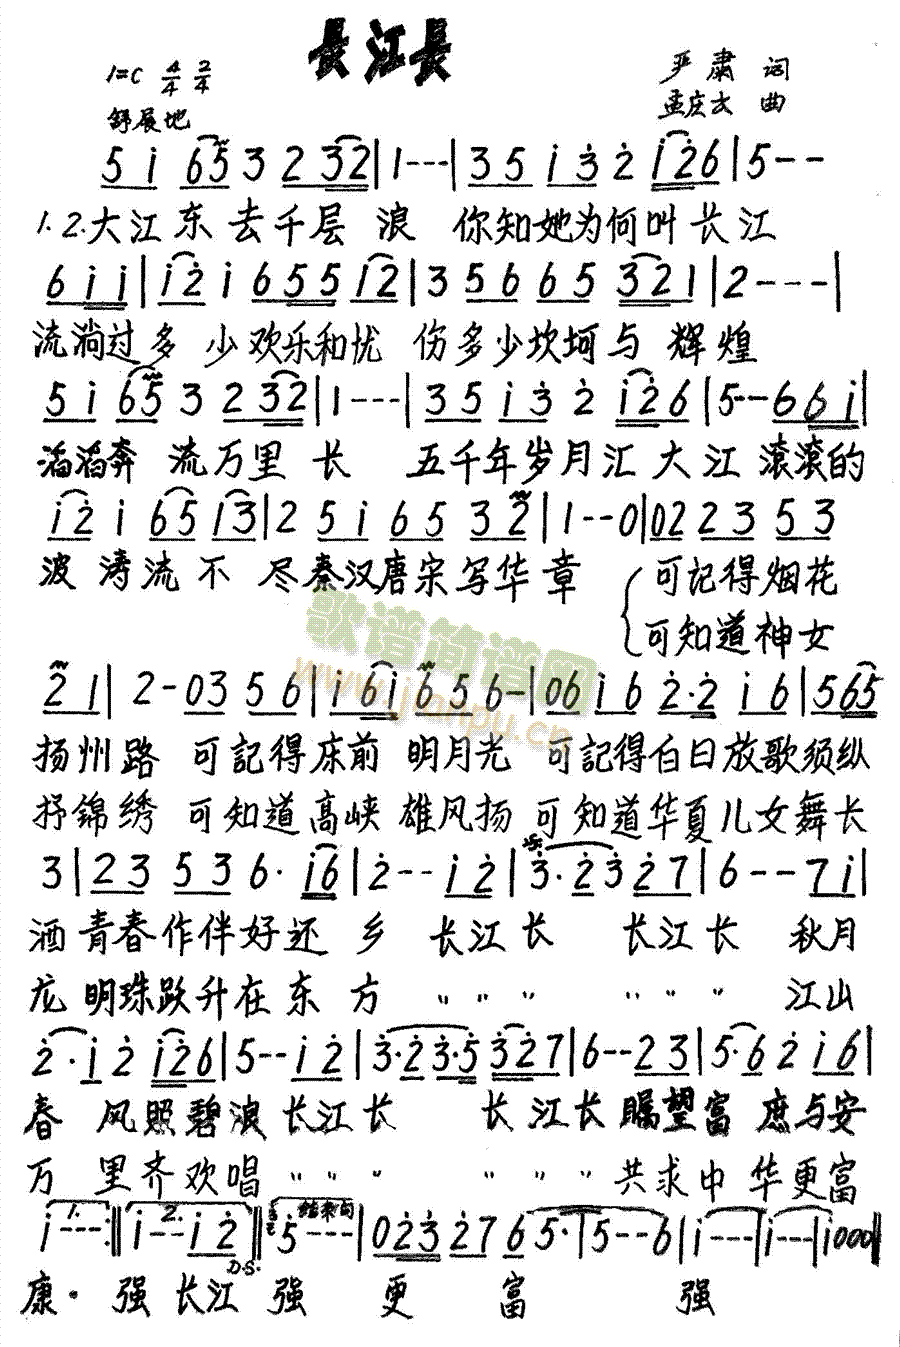 長江長
1=C 4/4 2/4
严肃 词
孟庆云 曲
舒展地
5 i 6 5 3 2 3 2 | 1 - - - | 3 5 i 3 2 i 2 6 | 5 - -
1.2.大江东去千层浪 你知她为何叫长江
6 i i | i 2 i 6 5 5 i 2 | 3 5 6 6 5 3 2 1 | 2 - - - |
流淌过多少欢乐和忧伤多少坎坷与辉煌
5 i 6 5 3 2 3 2 | 1 - - - | 3 5 i 3 2 i 2 6 | 5 - - 6 6 i |
滔滔奔流万里长 五千年岁月汇大江滚滚的
i 2 i 6 5 i 3 | 2 5 i 6 5 3 2 | 1 - - 0 | 0 2 2 3 5 3
波涛流不尽秦汉唐宋写华章 可記得烟花
可知道神女
2 1 | 2 - 0 3 5 6 | i 6 i 6 5 6 - | 0 6 i 6 2 · 2 i 6 | 5 6 5
扬州路 可記得床前明月光 可記得白日放歌须纵
抒锦绣 可知道高峡雄风扬 可知道华夏儿女舞长
3 | 2 3 5 3 6 · i 6 | 2 - - i 2 | 3 · 2 3 2 7 | 6 - - 7 i |
酒青春作伴好还乡 长江长 长江长 秋月
龙明珠跃升在东方 〃 〃 〃 〃 〃 〃 江山
2 · i 2 i 2 6 | 5 - - i 2 | 3 · 2 3 · 5 3 2 7 | 6 - - 2 3 | 5 · 6 2 i 6 |
春风照碧浪长江长 长江长瞩望富庶与安
万里齐欢唱 〃 〃 〃 〃 〃 〃 共求中华更富
1. 2. 结束句
i - - - :‖ i - - i 2 ‖ 5 - - - | 0 2 3 2 7 6 5 · | 5 - - 6 | i - - - | i - - | i 0 0 0 ‖
D.S.
康·强长江强 更富强
歌谱简谱网
www.jianpu.cn